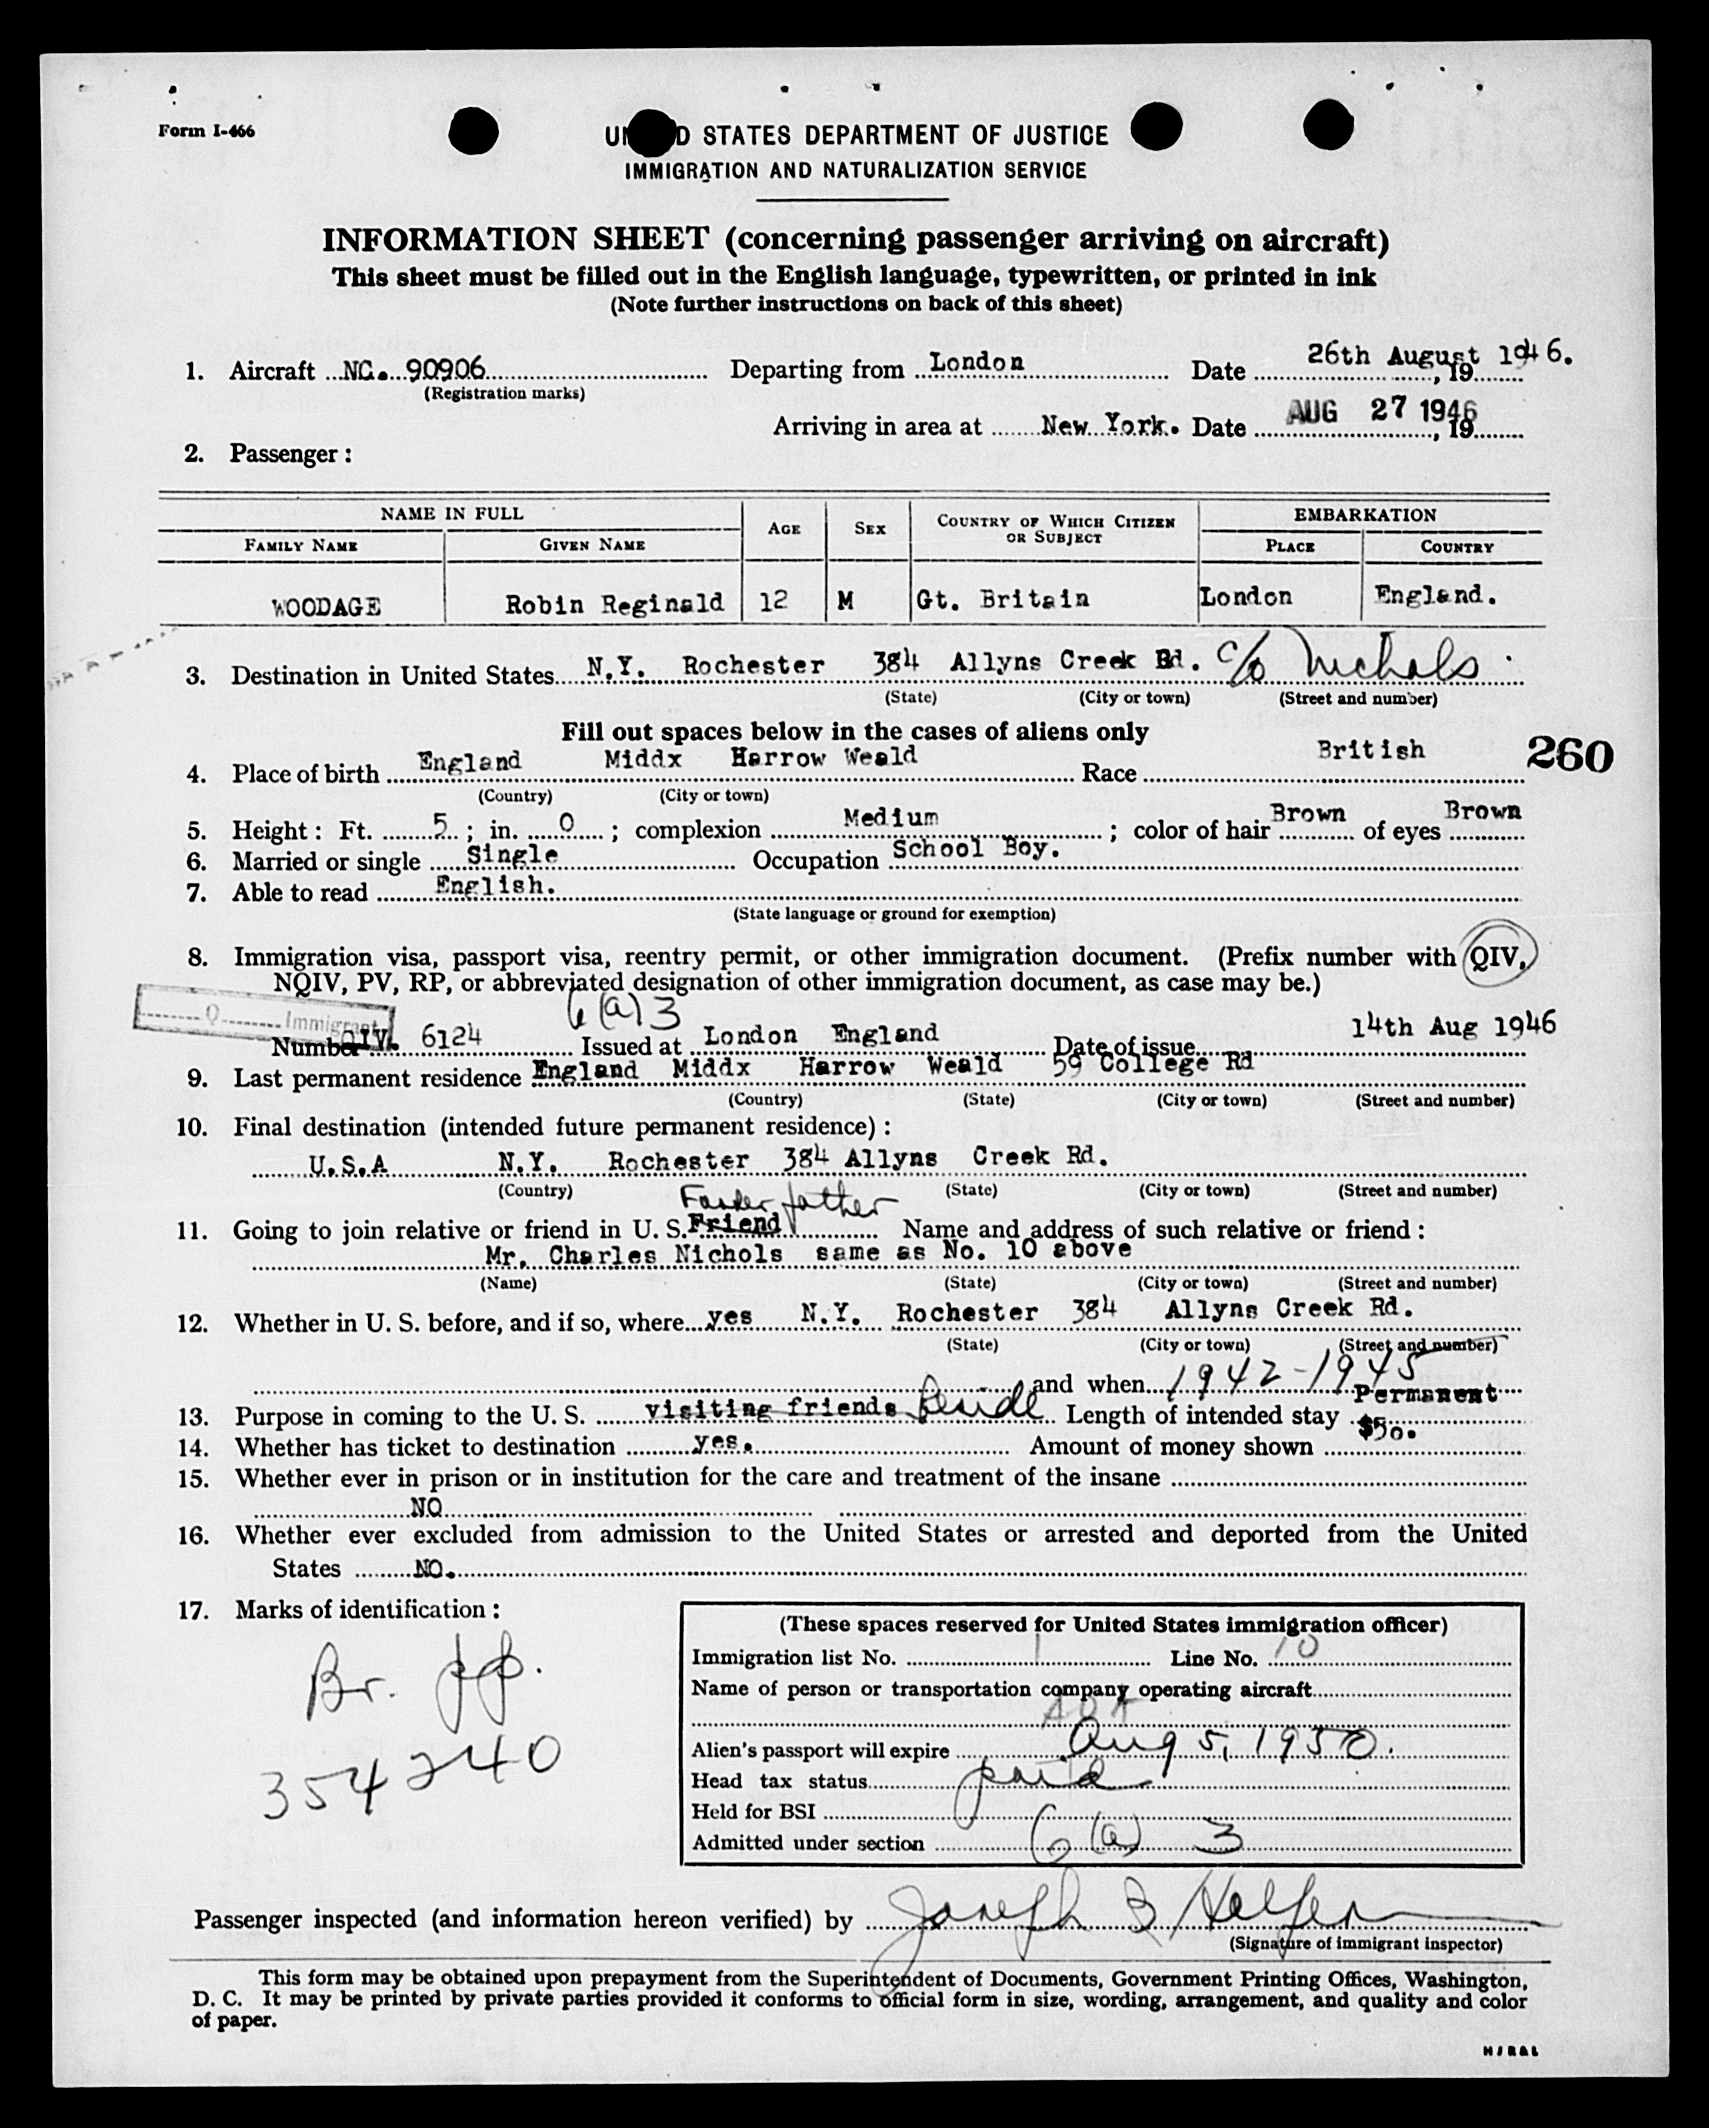 Form I-466
UN D STATES DEPARTMENT OF JUSTICE
IMMIGRATION AND NATURALIZATION SERVICE
INFORMATION SHEET (concerning passenger arriving on aircraft)
This sheet must be filled out in the English language, typewritten, or printed in ink
(Note further instructions on back of this sheet)
1. Aircraft NC. 90906 Departing from London Date 26th August 1946. , 19
(Registration marks)
Arriving in area at New York. Date AUG 27 1946 , 19
2. Passenger:
NAME IN FULL AGE SEX COUNTRY OF WHICH CITIZEN OR SUBJECT EMBARKATION
FAMILY NAME GIVEN NAME PLACE COUNTRY
WOODAGE Robin Reginald 12 M Gt. Britain London England.
3. Destination in United States N.Y. Rochester 384 Allyns Creek Rd. c/o Nichols
(State) (City or town) (Street and number)
Fill out spaces below in the cases of aliens only
4. Place of birth England Middx Harrow Weald Race British 260
(Country) (City or town)
5. Height: Ft. 5; in. 0; complexion Medium; color of hair Brown of eyes Brown
6. Married or single Single Occupation School Boy.
7. Able to read English.
(State language or ground for exemption)
8. Immigration visa, passport visa, reentry permit, or other immigration document. (Prefix number with QIV,
NQIV, PV, RP, or abbreviated designation of other immigration document, as case may be.)
6(a)3
Q Immigrant
Number QIV. 6124 Issued at London England Date of issue 14th Aug 1946
9. Last permanent residence England Middx Harrow Weald 59 College Rd
(Country) (State) (City or town) (Street and number)
10. Final destination (intended future permanent residence):
U.S.A N.Y. Rochester 384 Allyns Creek Rd.
(Country) (State) (City or town) (Street and number)
Foster father
11. Going to join relative or friend in U. S. Friend Name and address of such relative or friend:
Mr. Charles Nichols same as No. 10 above
(Name) (State) (City or town) (Street and number)
12. Whether in U. S. before, and if so, where yes N.Y. Rochester 384 Allyns Creek Rd.
(State) (City or town) (Street and number)
and when 1942-1945
13. Purpose in coming to the U. S. visiting friends Reside Length of intended stay Permanent
14. Whether has ticket to destination yes. Amount of money shown $50.
15. Whether ever in prison or in institution for the care and treatment of the insane
NO
16. Whether ever excluded from admission to the United States or arrested and deported from the United
States NO.
17. Marks of identification:
Br. pp.
354240
(These spaces reserved for United States immigration officer)
Immigration list No. 1 Line No. 10
Name of person or transportation company operating aircraft
AOA
Alien's passport will expire Aug 5, 1950.
Head tax status paid
Held for BSI
Admitted under section 6(a) 3
Passenger inspected (and information hereon verified) by Joseph B Helfer
(Signature of immigrant inspector)
This form may be obtained upon prepayment from the Superintendent of Documents, Government Printing Offices, Washington,
D. C. It may be printed by private parties provided it conforms to official form in size, wording, arrangement, and quality and color
of paper.